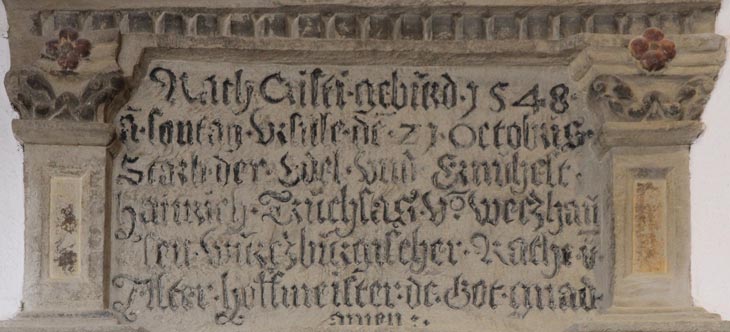 Nach Cristi · geburd · 1548 ·
ā · sontag · Vrsule · dē · 21 · Octobris ·
Starb · der · Edel · vnd · Ernuhelt ·
Hainrich · Truchsas · Vō · Wetzhau
sen · Wurtzburgischer · Rathe · ū ·
Alter · Hoffmeister · dē · Got · gnad ·
amen :·